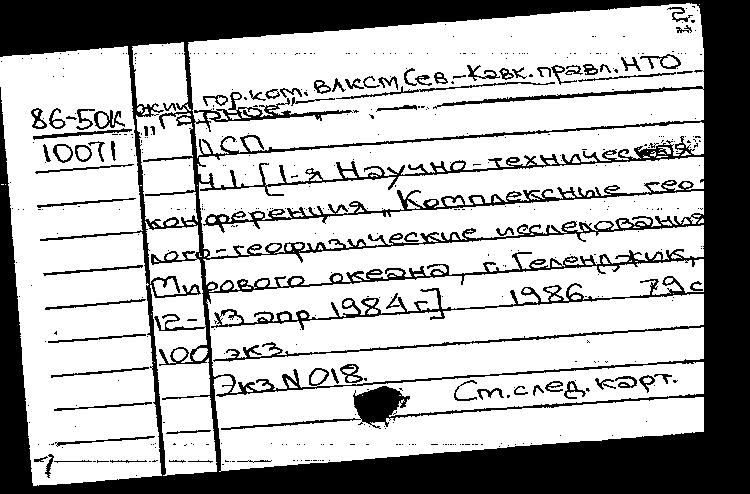 2.
жик. гор.ком. ВЛКСМ, Сев.-Кавк. правл. НТО
86-50К „Горное".
10071 ДСП.
Ч.1. [1-я Научно-техническая
конференция „Комплексные гео-
лого-геофизические исследования
Мирового океана, г. Геленджик,
12-13 апр. 1984 г.] 1986. 79 с
100 экз.
Экз.N 018.
Ст. след. карт.